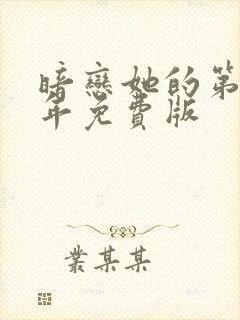 暗戀她的第
年免費版
叢某某